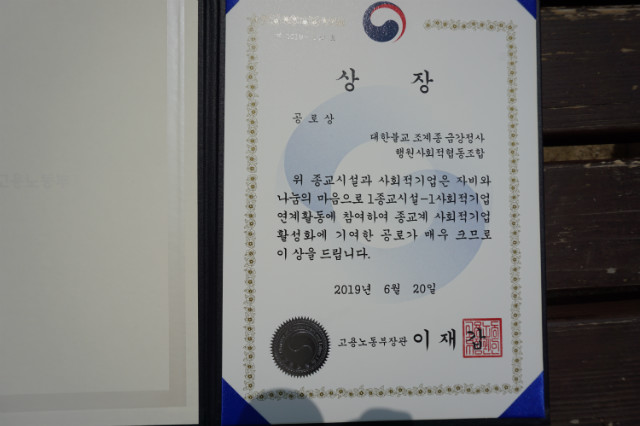 상 장
공로상
대한불교 조계종 금강정사
행원사회적협동조합
위 종교시설과 사회적기업은 자비와
나눔의 마음으로 1종교시설-1사회적기업
연계활동에 참여하여 종교계 사회적기업
활성화에 기여한 공로가 매우 크므로
이 상을 드립니다.
2019년 6월 20일
고용노동부장관 이재갑